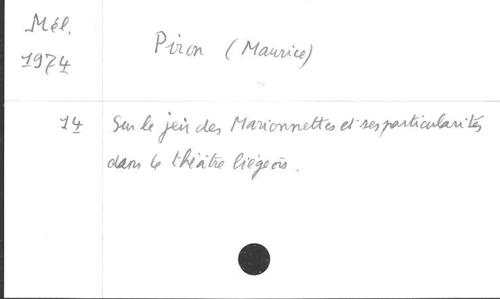 Mél.
1974
Piron (Maurice)
14 Sur le jeu des Marionnettes et ses particularités
dans le théâtre liégeois.